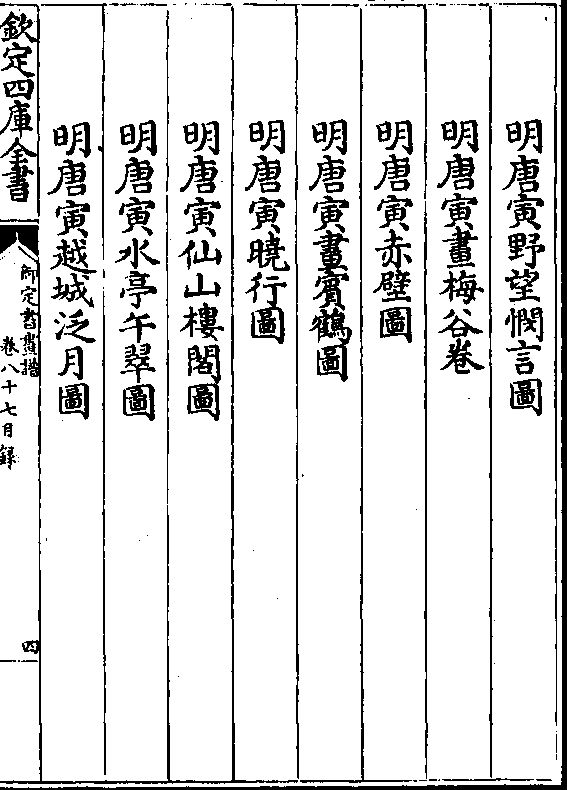 明唐寅野望憫言圖
明唐寅畫梅谷卷
明唐寅赤壁圖
明唐寅畫賓鶴圖
明唐寅曉行圖
明唐寅仙山樓閣圖
明唐寅水亭午翠圖
明唐寅越城泛月圖
欽定四庫全書
御定書畫譜
卷八十七目録
四